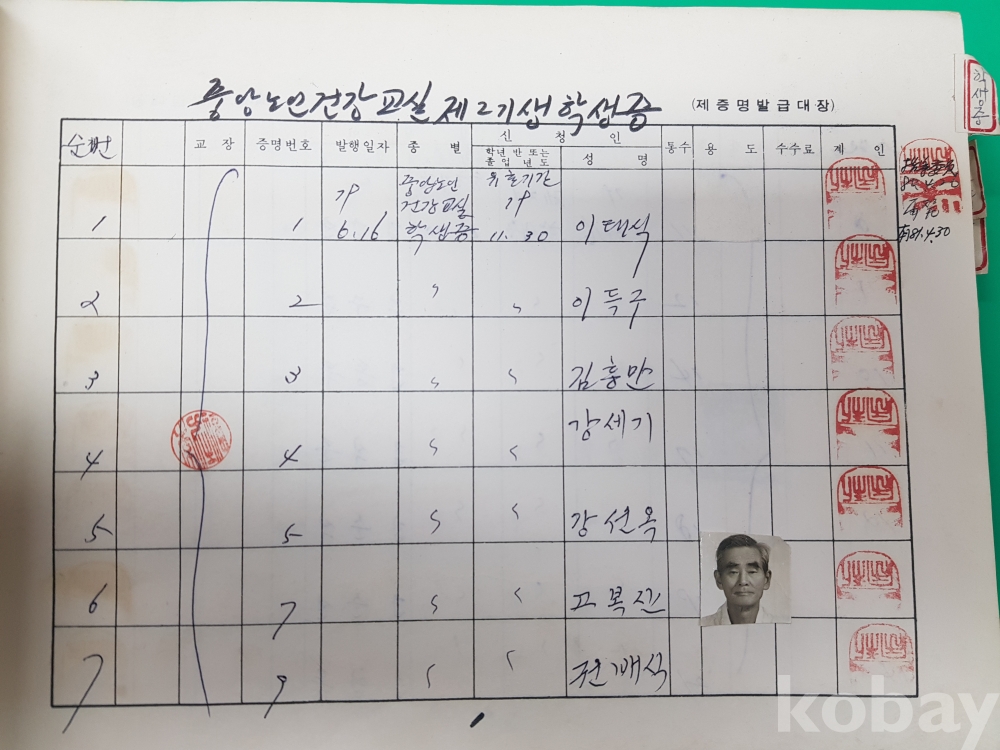 중앙노인건강교실 제2기생학생증 (제증명발급대장)
학생증
순번 교장 증명번호 발행일자 종별 신청인 통수 용도 수수료 계인
학년 반 또는 졸업년도 성명
중앙노인 유효기간
건강교실
1 1 6.16 학생증 11. 30 이태식
81.4.30
2 2 〃 〃 이득구
3 3 〃 〃 김흥만
4 4 〃 〃 강세기
5 5 〃 〃 강선옥
6 7 〃 〃 고복진
7 9 〃 〃 전배식
kobay